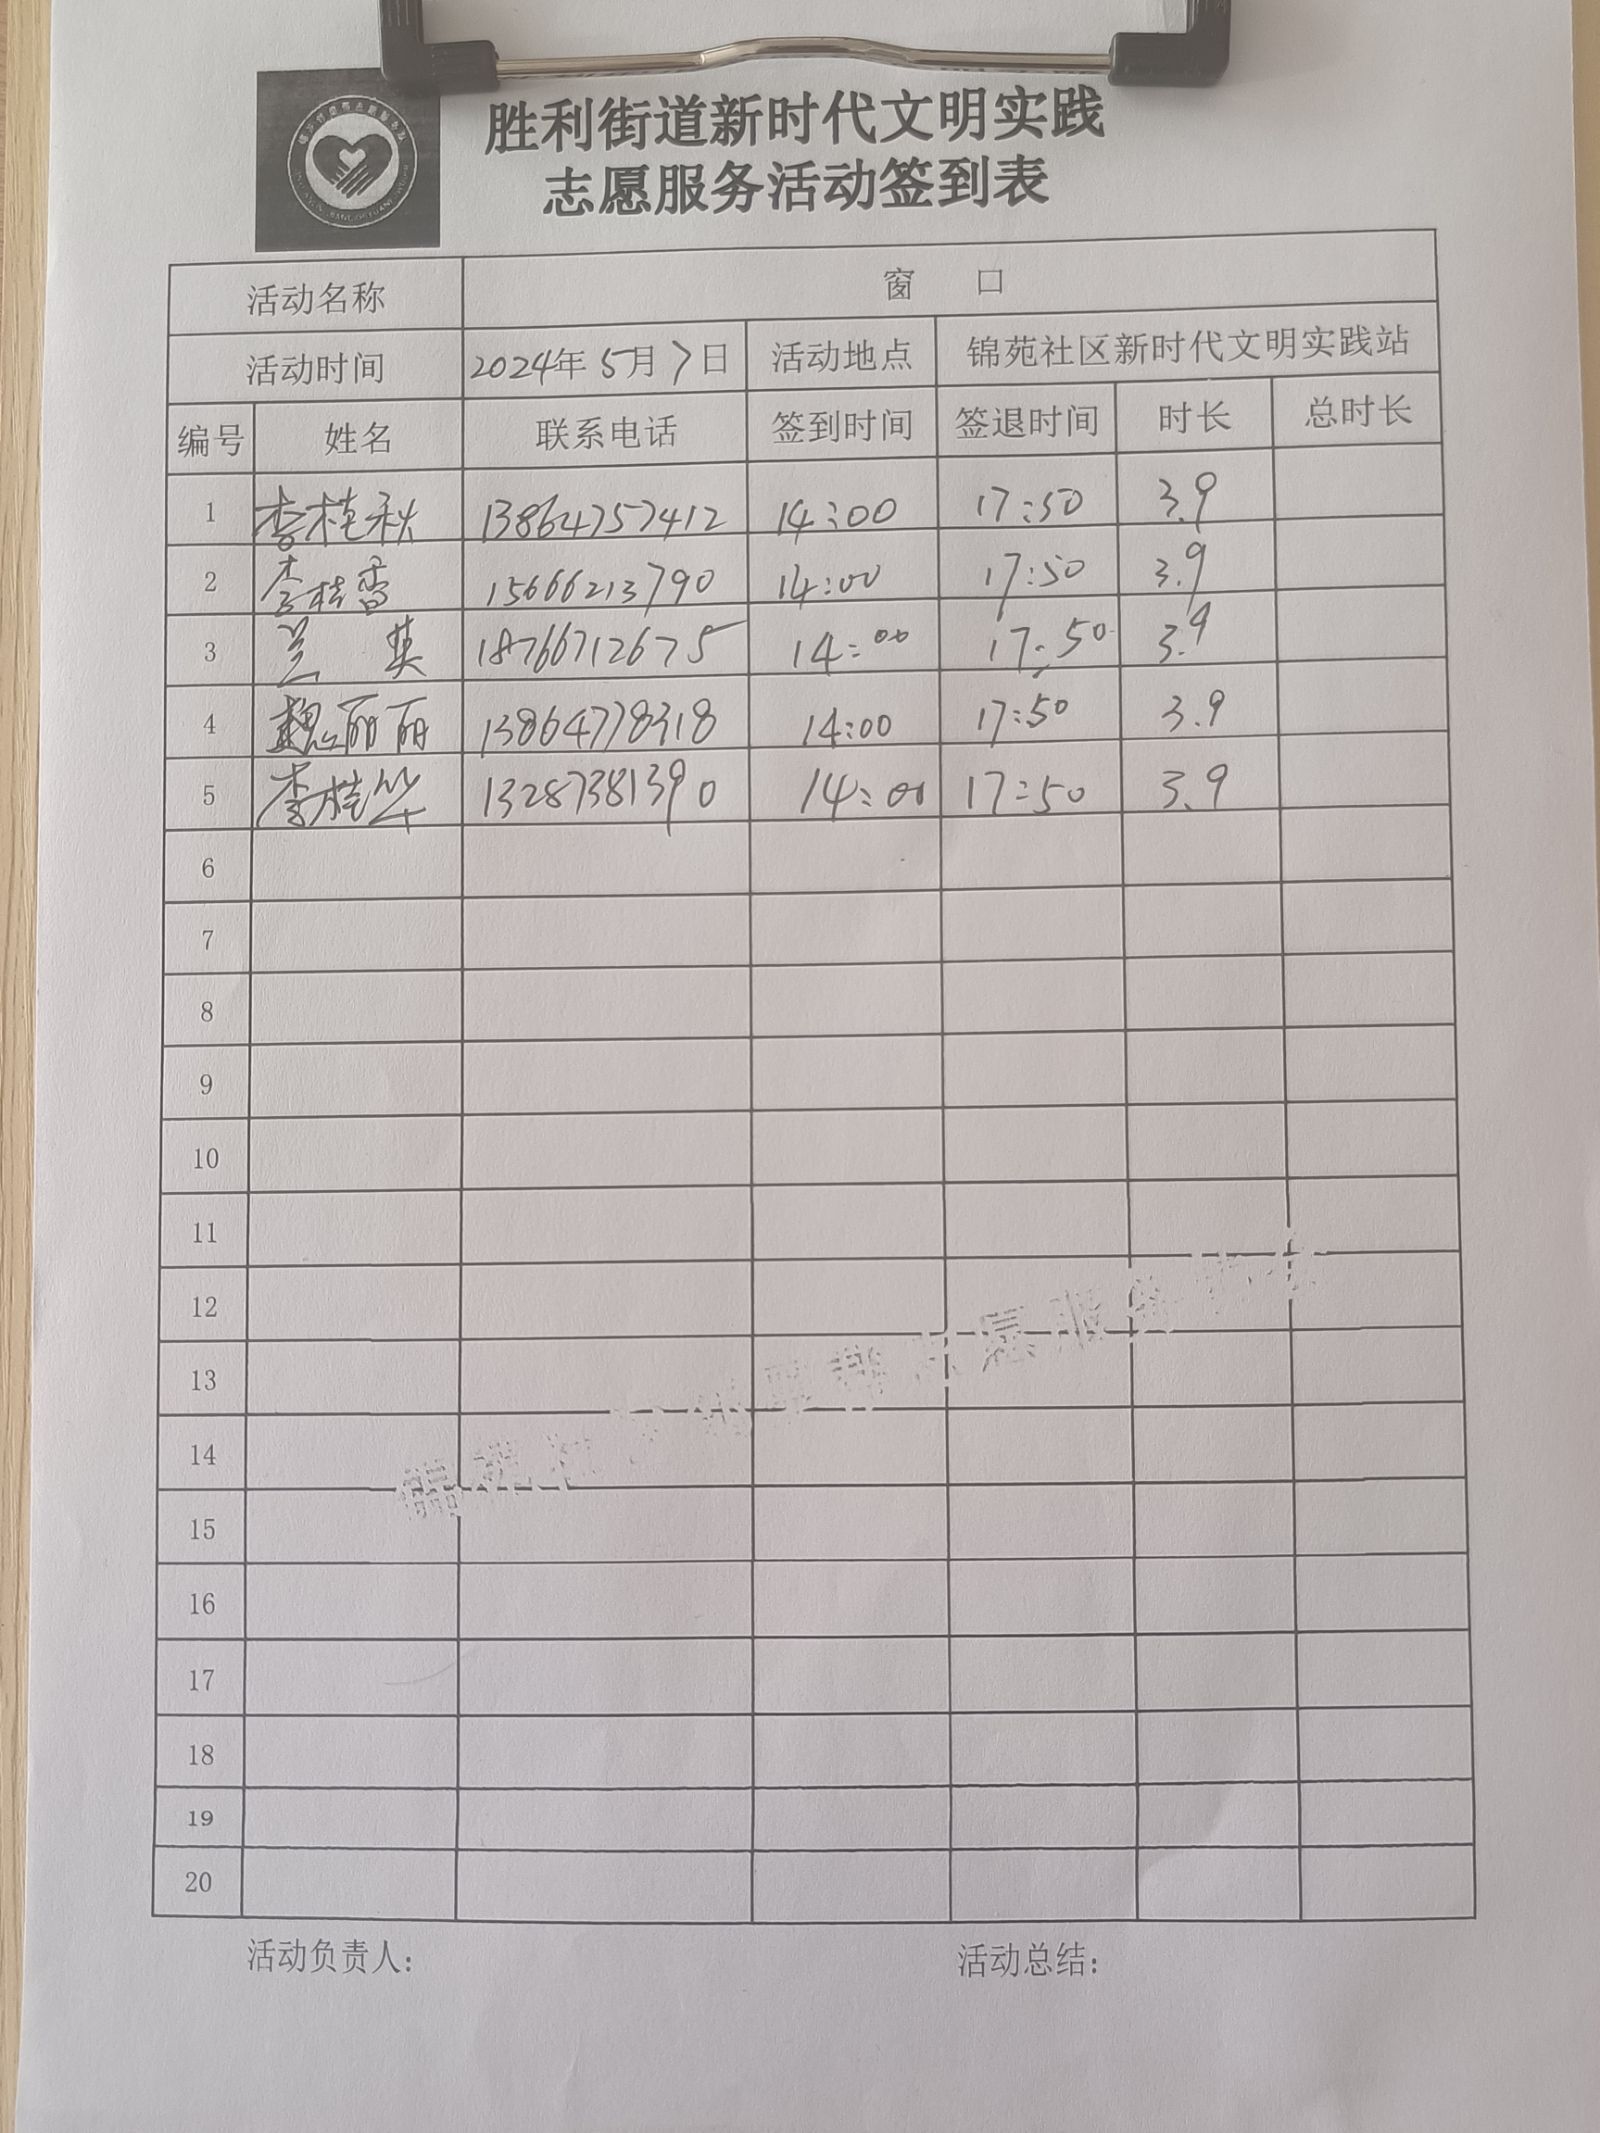 胜利街道新时代文明实践
志愿服务活动签到表
活动名称 窗 口
活动时间 2024年5月7日 活动地点 锦苑社区新时代文明实践站
编号 姓名 联系电话 签到时间 签退时间 时长 总时长
1 李桂秋 13864757412 14:00 17:50 3.9
2 李桂香 15666213790 14:00 17:50 3.9
3 兰英 18766712675 14:00 17:50 3.9
4 魏丽丽 13864778318 14:00 17:50 3.9
5 李桂华 13287381390 14:00 17:50 3.9
6
7
8
9
10
11
12
13
14
15
16
17
18
19
20
活动负责人: 活动总结: